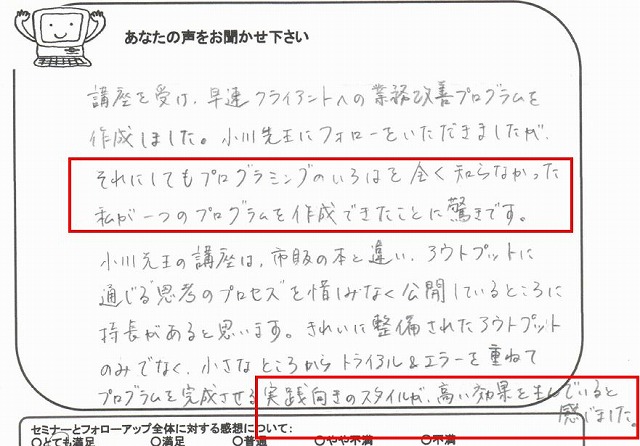 あなたの声をお聞かせ下さい
講座を受け、早速クライアントへの業務改善プログラムを
作成しました。小川先生にフォローをいただきましたが、
それにしてもプログラミングのいろはを全く知らなかった
私が一つのプログラムを作成できたことに驚きです。
小川先生の講座は、市販の本と違い、アウトプットに
通じる思考のプロセスを惜しみなく公開しているところに
特長があると思います。きれいに整備されたアウトプット
のみでなく、小さなところからトライアル&エラーを重ねて
プログラムを完成させる実践向きのスタイルが、高い効果を生んでいると
感じました。
セミナーとフォローアップ全体に対する感想について:
○とても満足 ○満足 ○普通 ○やや不満 ○不満